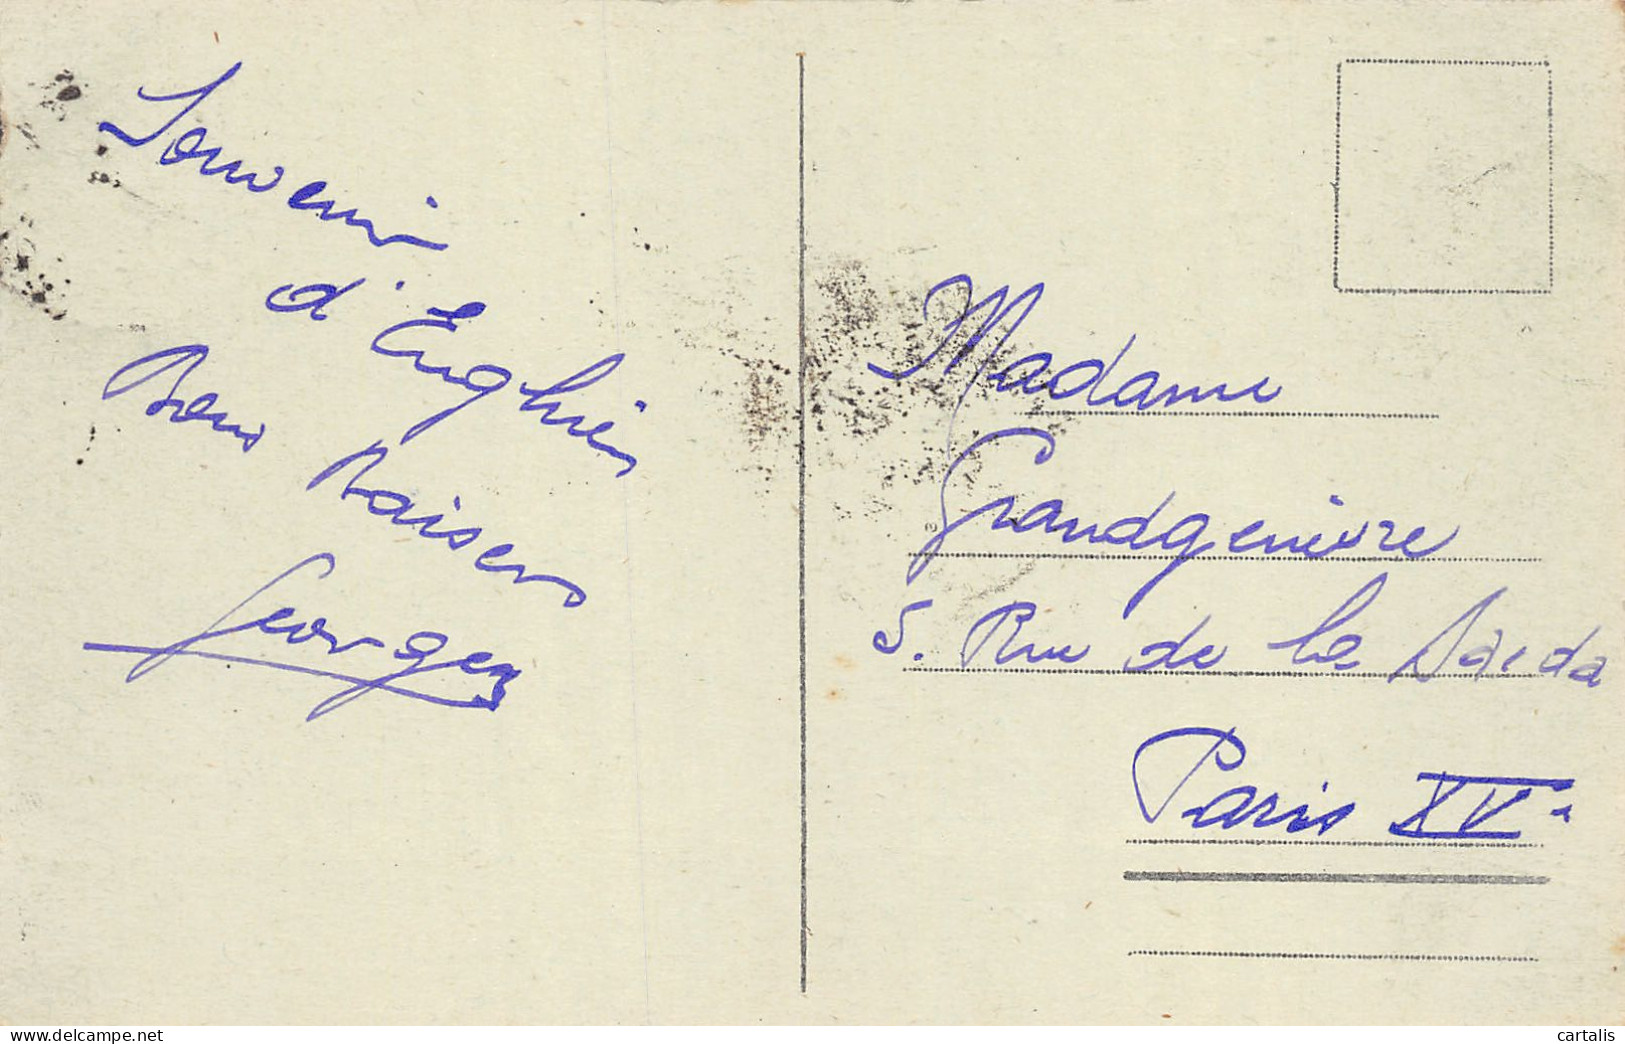 Souvenir
d'Enghien
Bons Baisers
Georges
Madame
Grandgenèvre
5. Rue de la Saïda
Paris XVe
cartalis